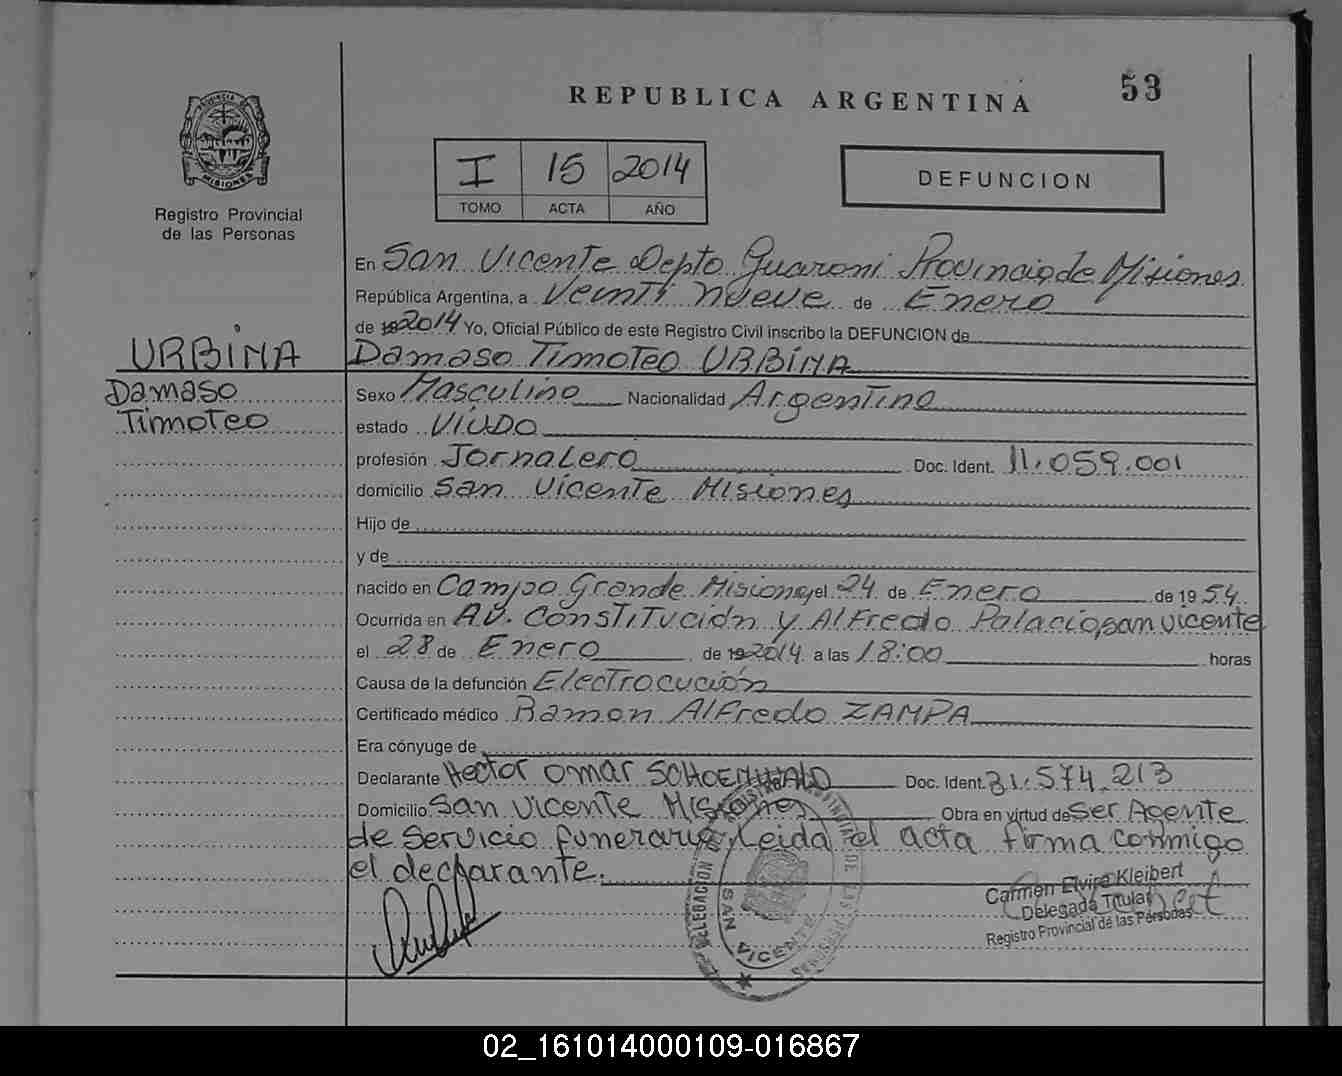 53
REPUBLICA ARGENTINA
PROVINCIA DE
MISIONES
Registro Provincial
de las Personas
I 15 2014
TOMO ACTA AÑO
DEFUNCION
En San Vicente Depto Guaraní Provincia de Misiones
República Argentina, a Veinti nueve de Enero
de 192014 Yo, Oficial Público de este Registro Civil inscribo la DEFUNCION de
URBINA
Damaso Timoteo URBINA
Damaso
Timoteo
Sexo Masculino Nacionalidad Argentino
estado Viudo
profesión Jornalero Doc. Ident. 11.059.001
domicilio San Vicente Misiones
Hijo de
y de
nacido en Campo Grande Misiones el 24 de Enero de 1954
Ocurrida en AV. Constitución y Alfredo Palacio, san vicente
el 28 de Enero de 192014 a las 18:00 horas
Causa de la defunción Electrocución
Certificado médico Ramon Alfredo ZAMPA
Era cónyuge de
Declarante Hector Omar SCHOENWALD Doc. Ident. 31.574.213
Domicilio San Vicente Misiones Obra en virtud de Ser Agente
de Servicio funerario Leida el acta firma conmigo
el declarante.
DELEGACION
SAN VICENTE
DE LAS PERSONAS
Carmen Elvira Kleibert
Delegada Titular
Registro Provincial de las Personas
02_161014000109-016867